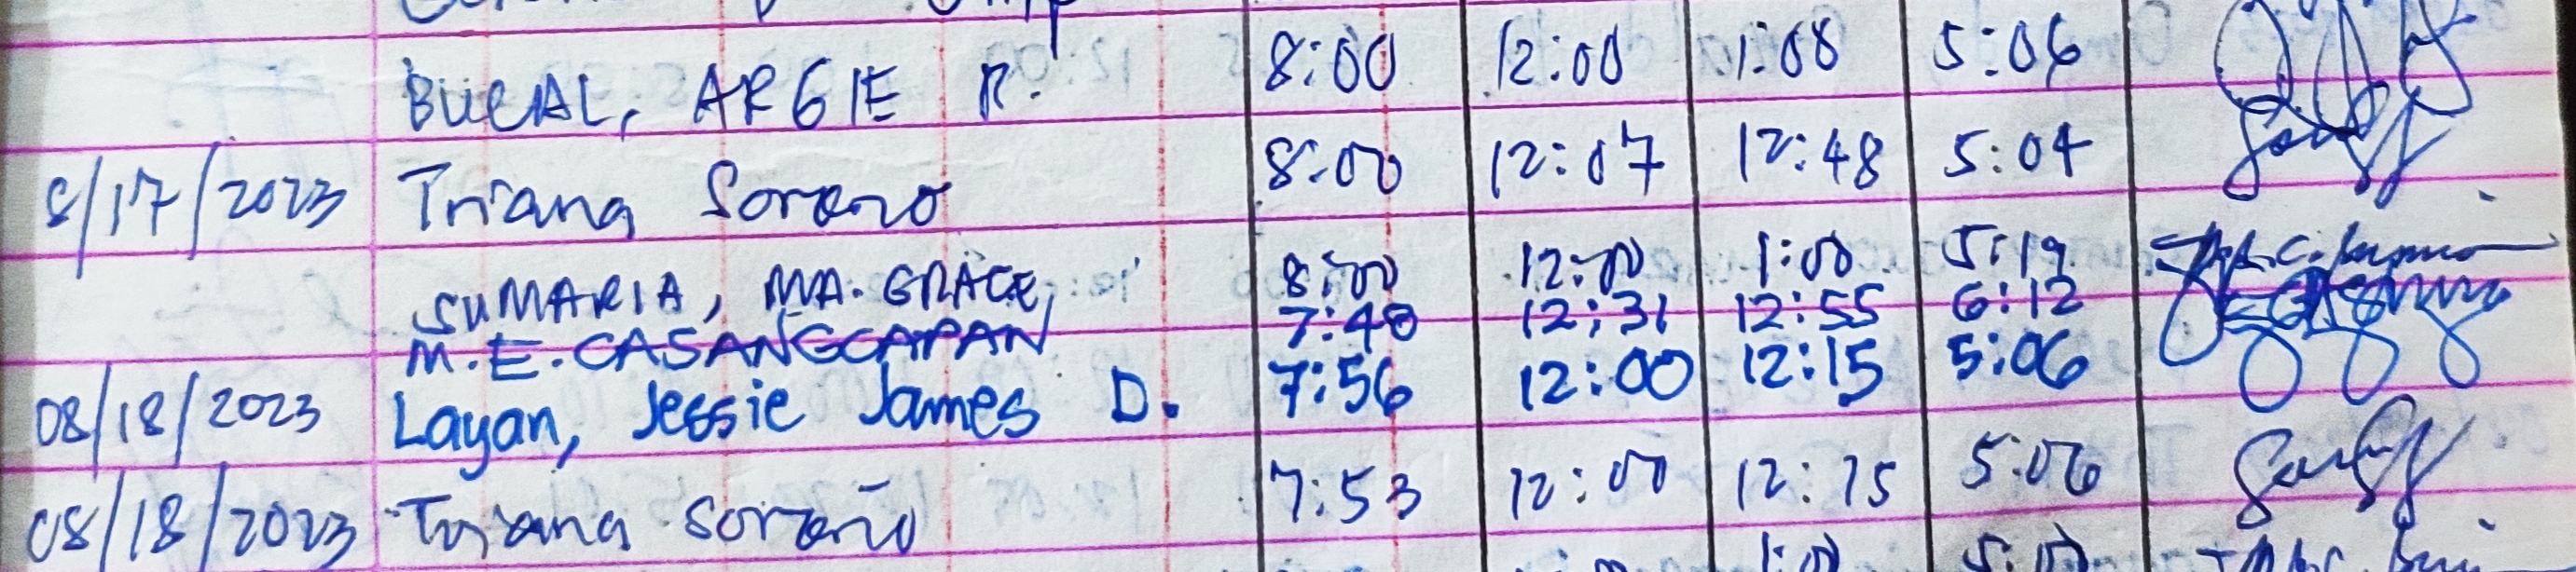 BUCAL, ARGIE R. 8:00 12:00 1:08 5:06
8/17/2023 Triana Soreno 8:00 12:07 12:48 5:04
SUMARIA, MA. GRACE 8:00 12:00 1:00 5:19
M.E. CASANGCAPAN 7:48 12:31 12:55 6:12
08/18/2023 Layan, Jessie James D. 7:56 12:00 12:15 5:06
08/18/2023 Triana Soreño 7:53 12:00 12:15 5:06
1:00 5:00